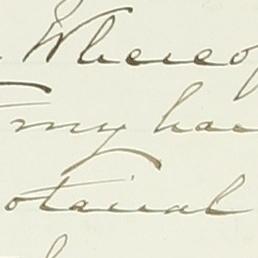 Whereof
my han
otarial